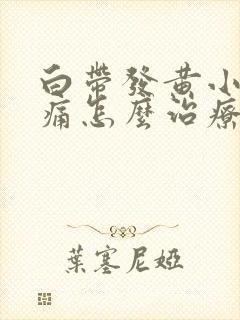 白帶發黃小
痛怎麼治療
葉塞尼婭